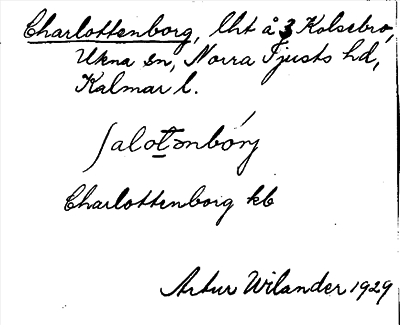 Charlottenborg, lht å 3 Kolsebro,
Ukna sn, Norra Tjusts hd,
Kalmar l.
ʃalotənbórj
Charlottenborg kb
Artur Wilander 1929